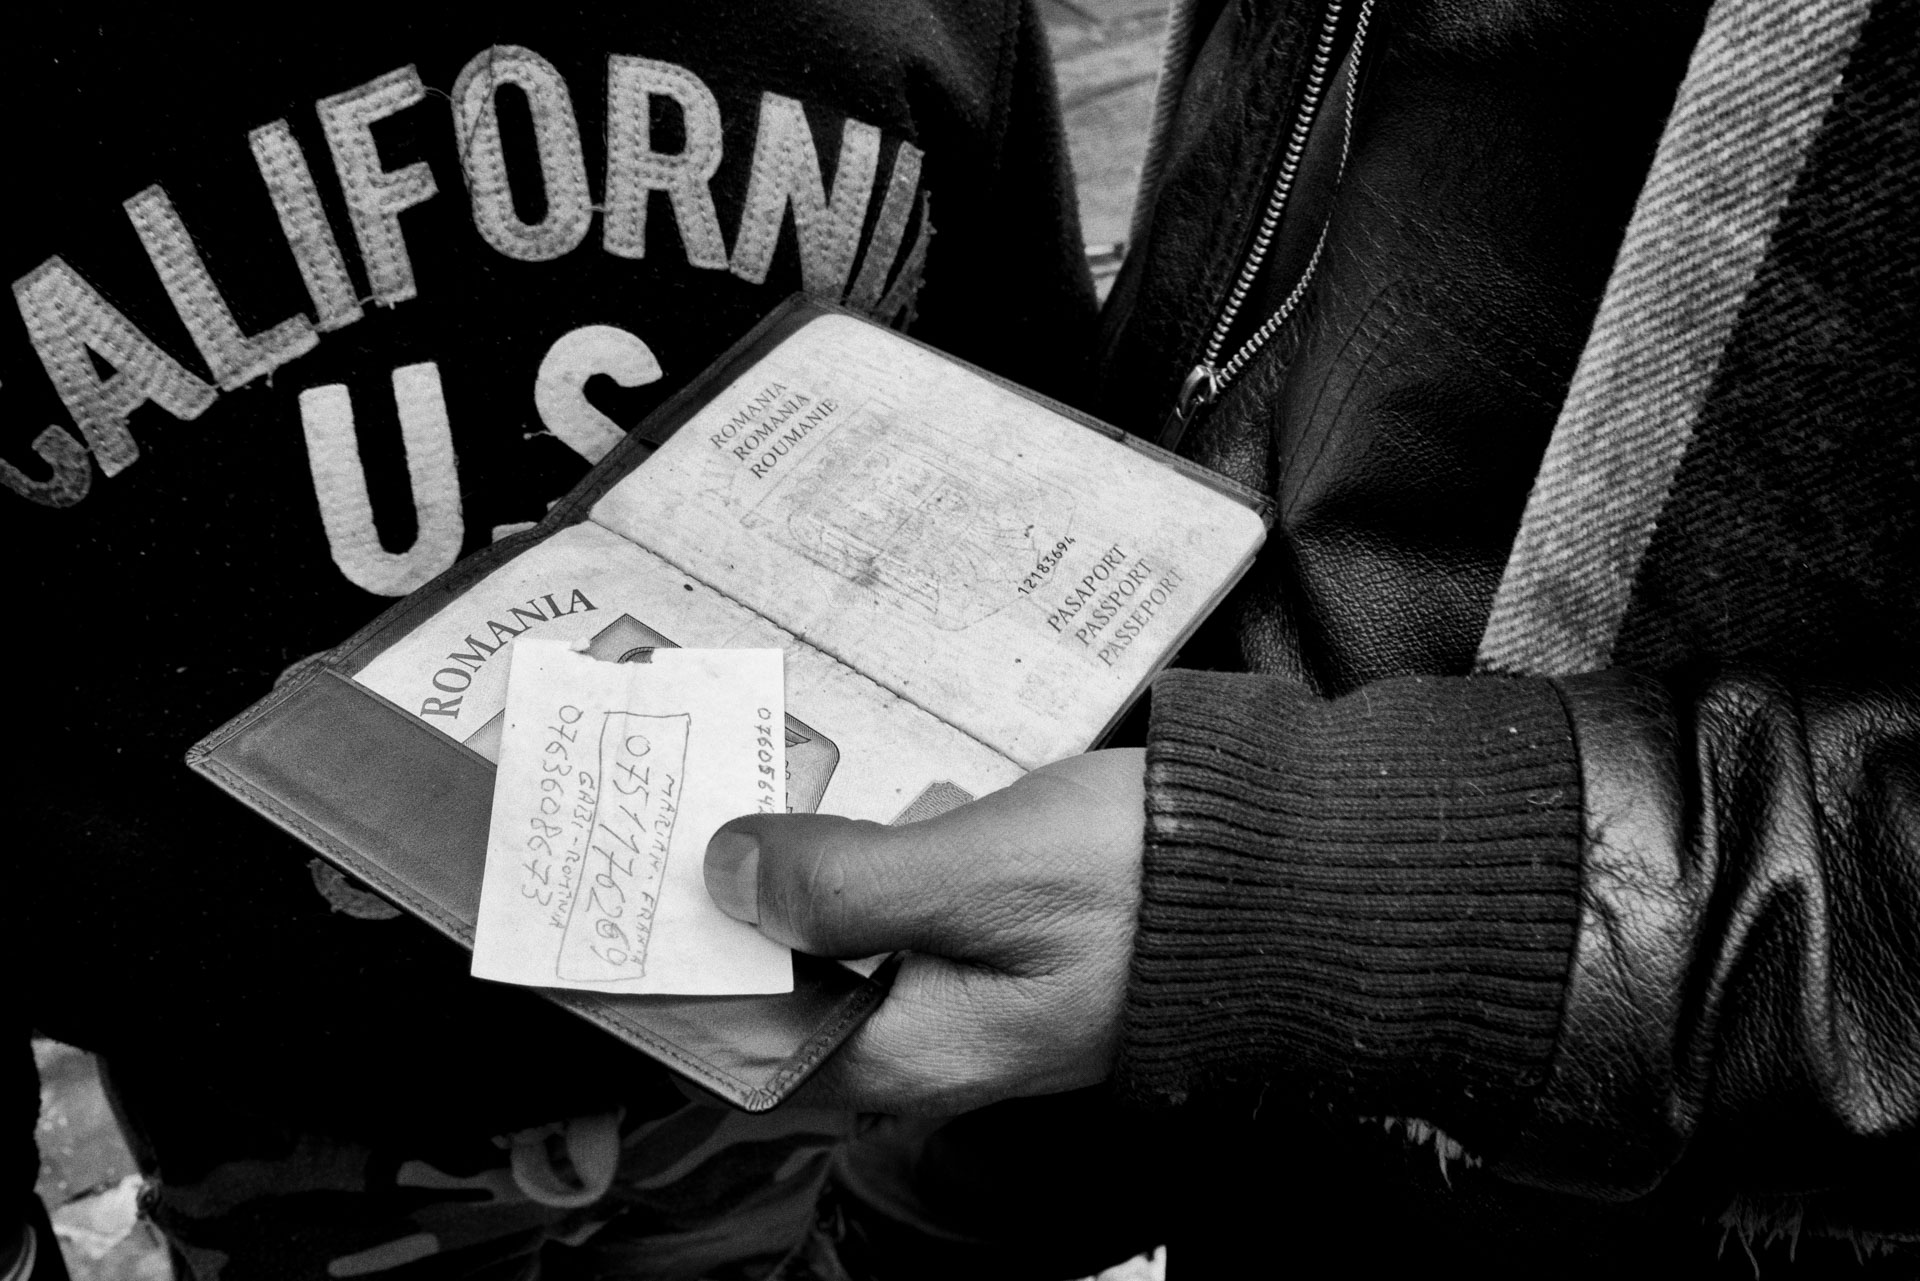 CALIFORNIA
U.S.
ROMANIA
ROMÂNIA
ROUMANIE
12183694
PASAPORT
PASSPORT
PASSEPORT
ROMANIA
0760564
MARIANA FRANTA
0751176269
GABI-ROMANIA
0763608673